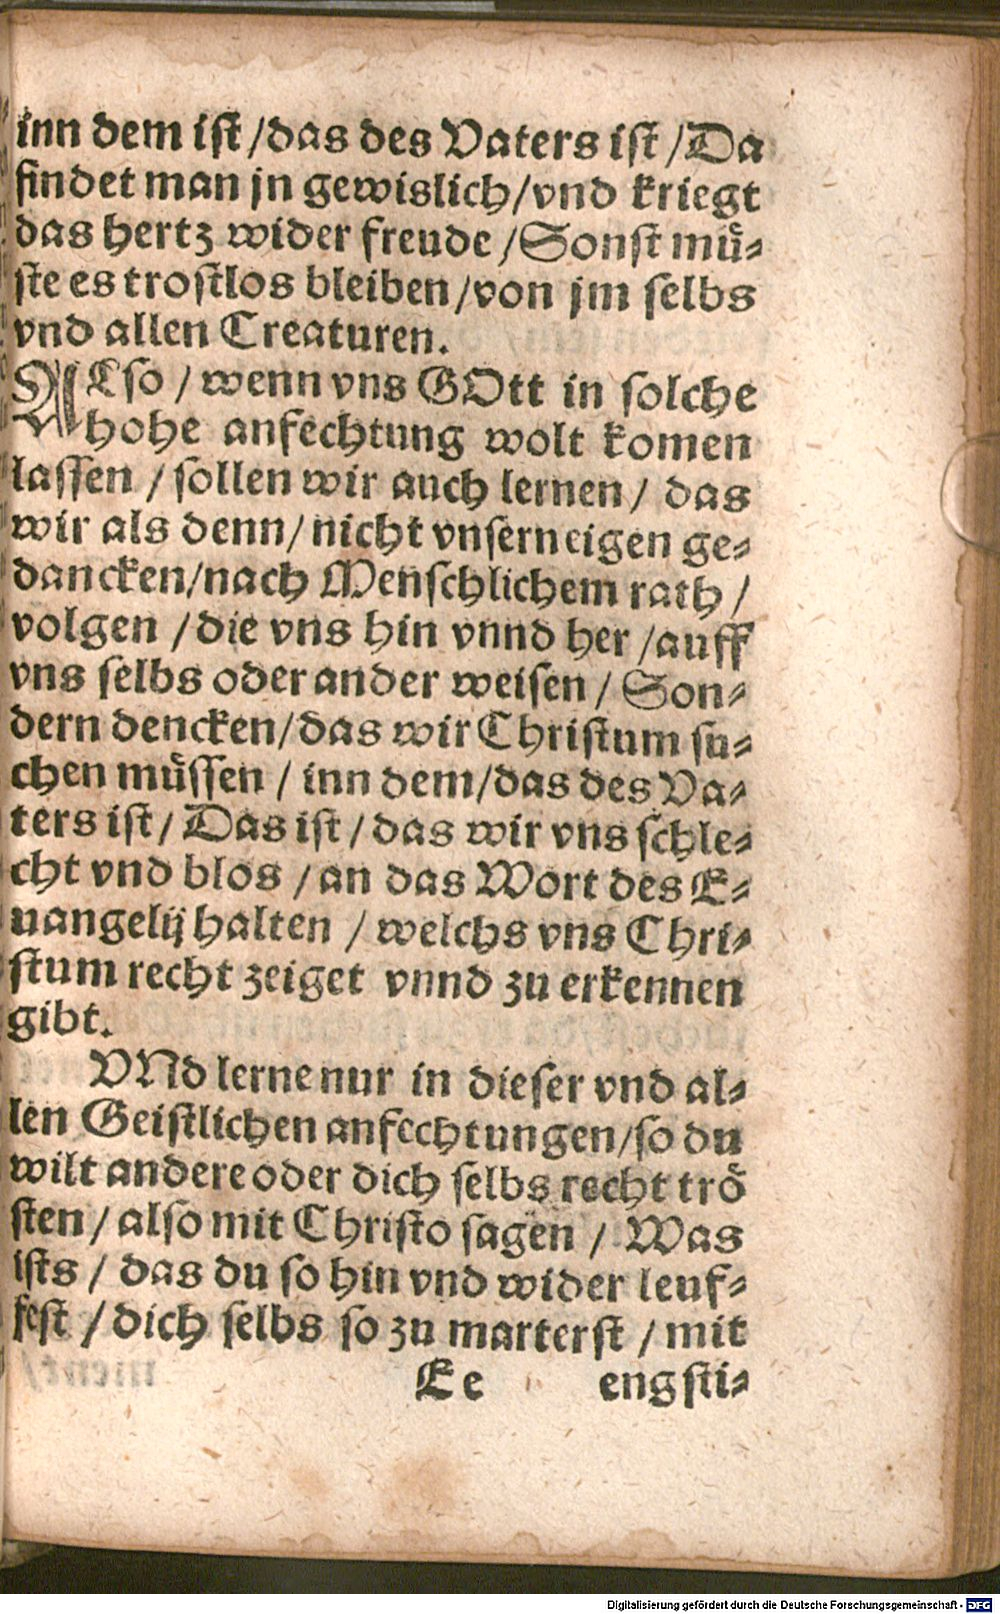 inn dem ist /das des Vaters ist /Da
findet man jn gewislich/vnd kriegt
das hertz wider freude /Sonst mü-
ste es trostlos bleiben /von jm selbs
vnd allen Creaturen.
ALso / wenn vns GOtt in solche
hohe anfechtung wolt komen
lassen / sollen wir auch lernen / das
wir als denn/ nicht vnsern eigen ge-
dancken/nach Menschlichem rath /
volgen /die vns hin vnnd her /auff
vns selbs oder ander weisen / Son-
dern dencken/das wir Christum su-
chen müssen / inn dem/das des Va-
ters ist/ Das ist / das wir vns schle-
cht vnd blos /an das Wort des E-
uangelij halten / welchs vns Chri-
stum recht zeiget vnnd zu erkennen
gibt.
VNd lerne nur in dieser vnd al-
len Geistlichen anfechtungen/so du
wilt andere oder dich selbs recht trö
sten / also mit Christo sagen / Was
ists / das du so hin vnd wider leuf-
fest / dich selbs so zu marterst / mit
Ee engsti-
Digitalisierung gefördert durch die Deutsche Forschungsgemeinschaft - DFG